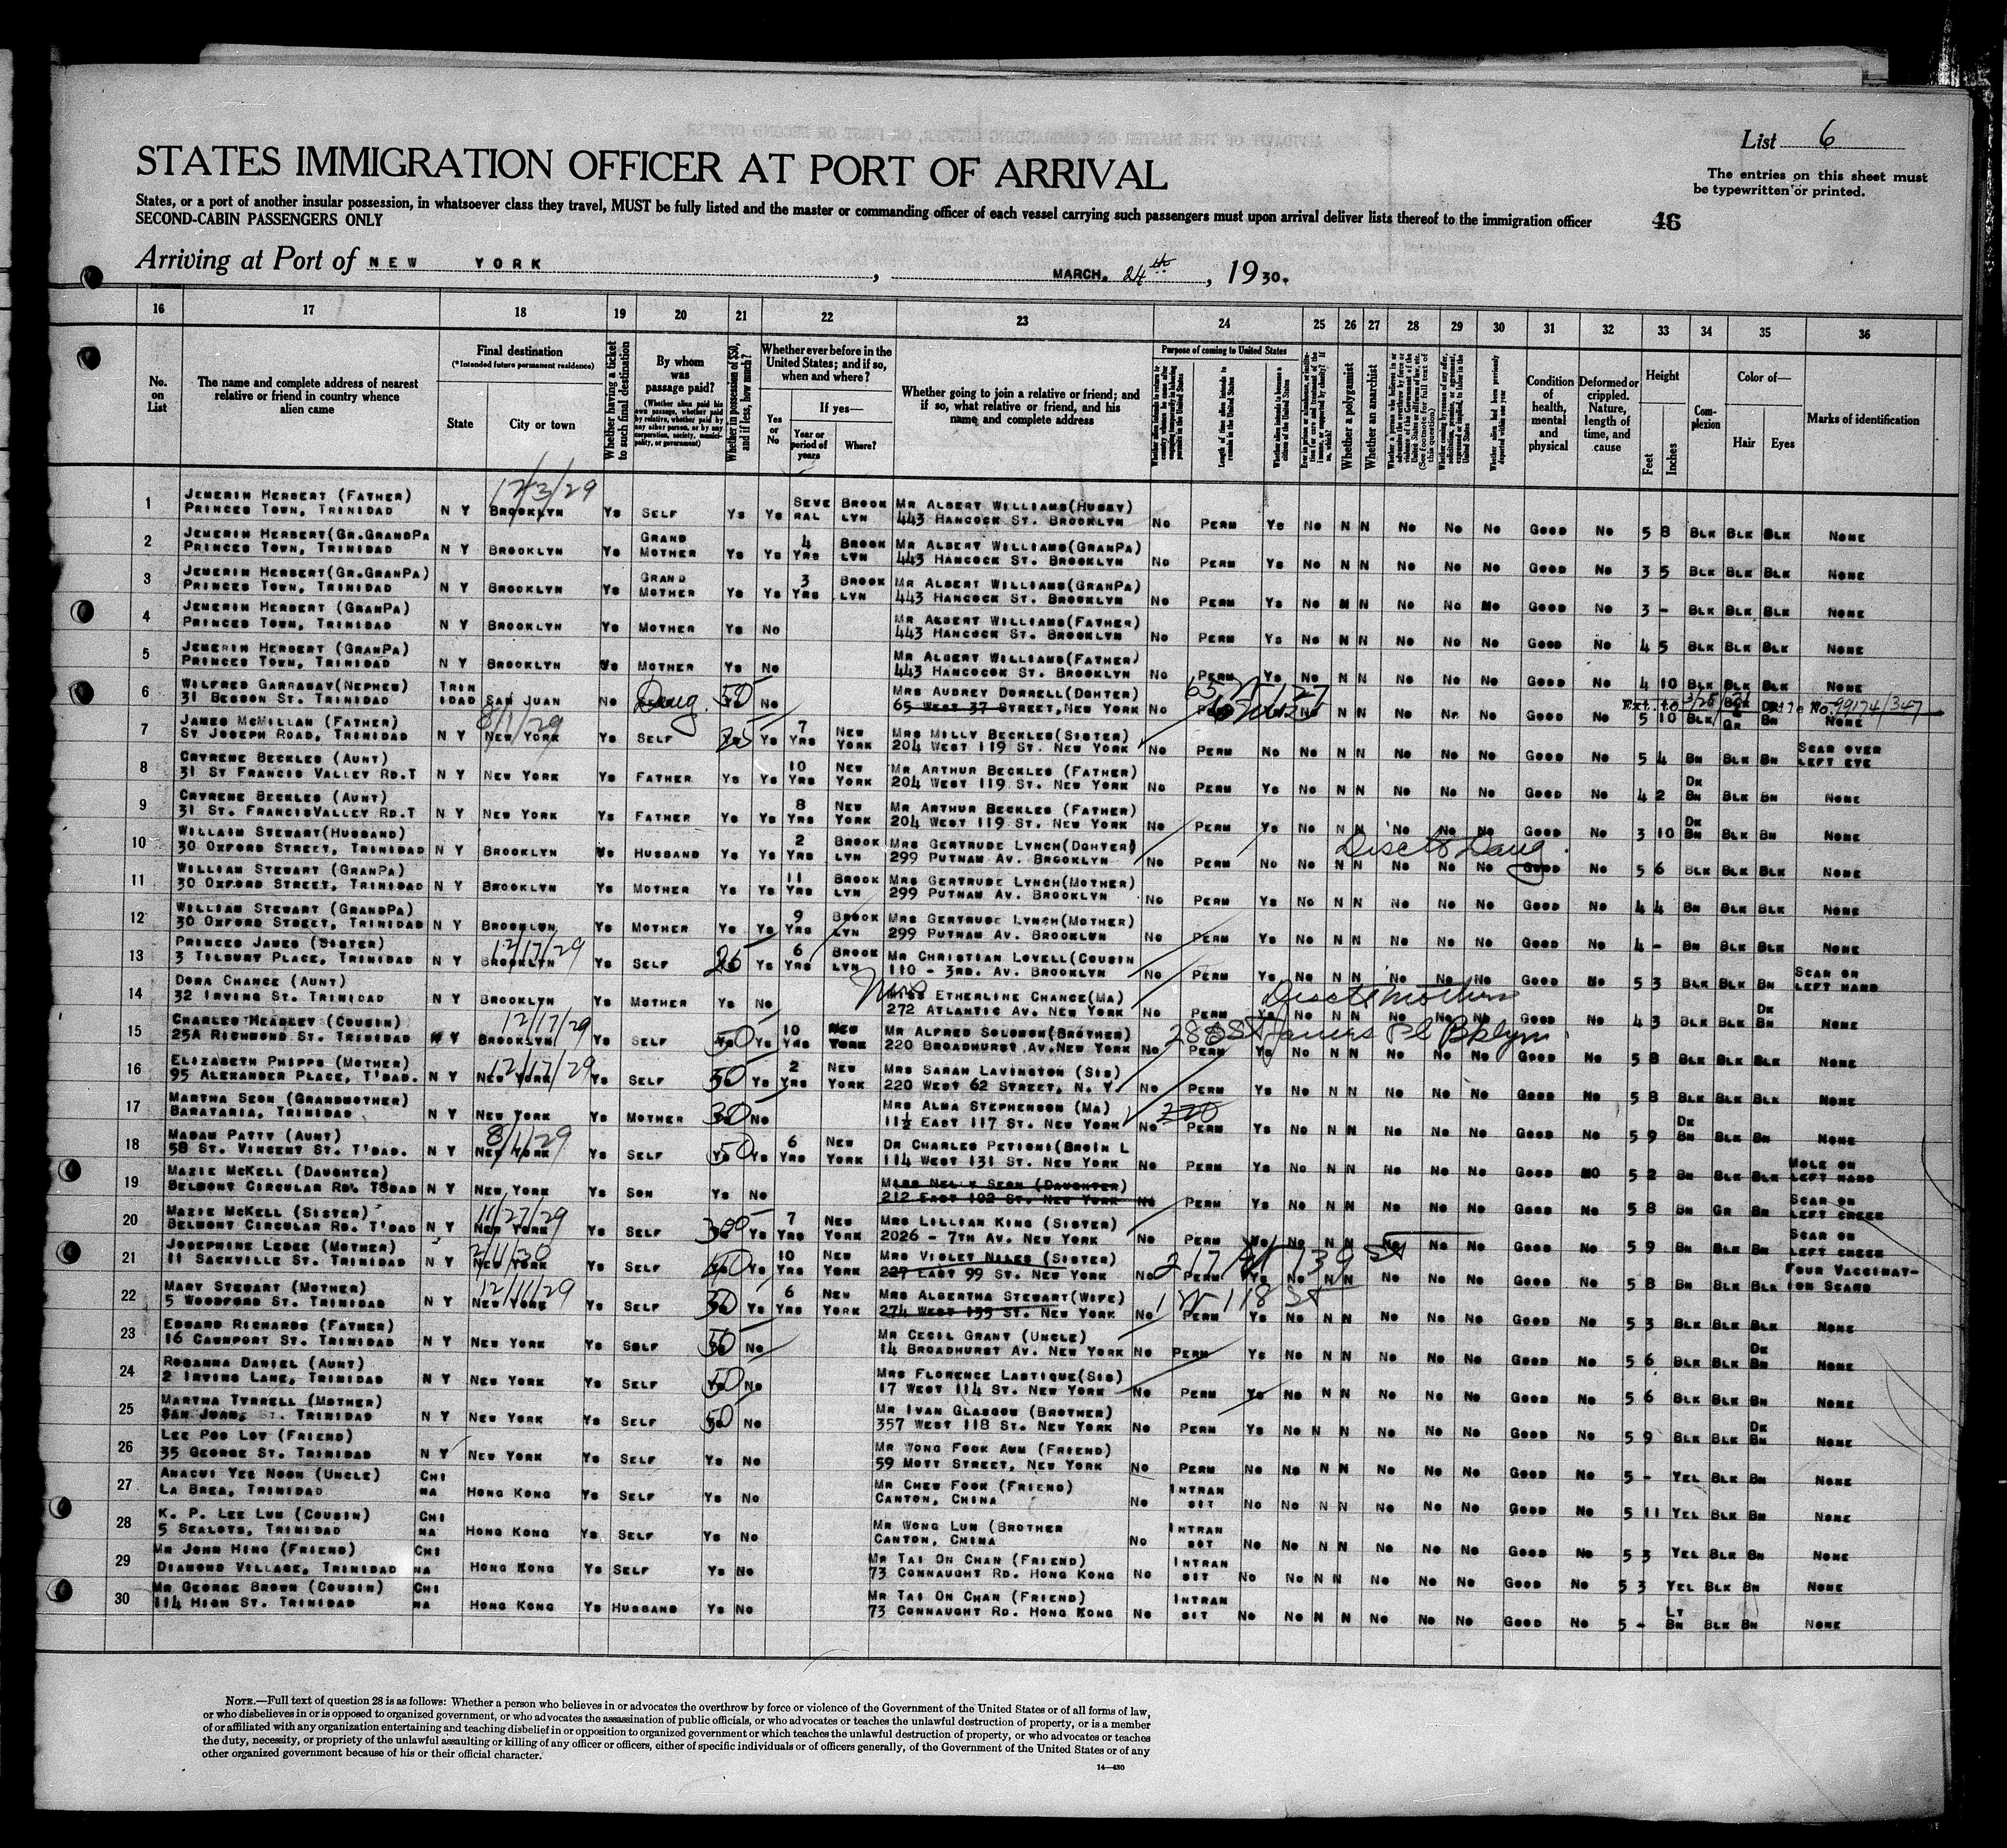 List 6
STATES IMMIGRATION OFFICER AT PORT OF ARRIVAL
The entries on this sheet must
be typewritten or printed.
States, or a port of another insular possession, in whatsoever class they travel, MUST be fully listed and the master or commanding officer of each vessel carrying such passengers must upon arrival deliver lists thereof to the immigration officer
SECOND-CABIN PASSENGERS ONLY
46
Arriving at Port of NEW YORK, MARCH. 24th, 1930.
16 17 18 19 20 21 22 23 24 25 26 27 28 29 30 31 32 33 34 35 36
No. on List
The name and complete address of nearest relative or friend in country whence alien came
Final destination
(*Intended future permanent residence)
State
City or town
Whether having a ticket to such final destination
By whom was passage paid?
(Whether alien paid his own passage, whether paid by relative, whether paid by any other person, or by any corporation, society, municipality, or government)
Whether in possession of $50, and if less, how much?
Whether ever before in the United States; and if so, when and where?
Yes or No
If yes—
Year or period of years
Where?
Whether going to join a relative or friend; and if so, what relative or friend, and his name and complete address
Purpose of coming to United States
Length of time alien intends to remain in the United States
Whether alien intends to become a citizen of the United States
Whether a polygamist
Whether an anarchist
Condition of health, mental and physical
Deformed or crippled. Nature, length of time, and cause
Height
Feet
Inches
Complexion
Color of—
Hair
Eyes
Marks of identification
12/3/29
1 JEMERIN HERBERT (FATHER) SEVE BROOK MR ALBERT WILLIAMS(HUSBY)
PRINCES TOWN, TRINIDAD N Y BROOKLYN YS SELF YS YS RAL LYN 443 HANCOCK ST. BROOKLYN NO PERM YS NO N N NO NO NO GOOD NO 5 8 BLK BLK BLK NONE
2 JEMERIN HERBERT(GR.GRANDPA GRAND 4 BROOK MR ALBERT WILLIAMS(GRANPA)
PRINCES TOWN, TRINIDAD N Y BROOKLYN YS MOTHER YS YS YRS LYN 443 HANCOCK ST. BROOKLYN NO PERM YS NO N N NO NO NO GOOD NO 3 5 BLK BLK BLK NONE
3 JEMERIN HERBERT(GR.GRANPA) GRAND 3 BROOK MR ALBERT WILLIAMS(GRANPA)
PRINCES TOWN, TRINIDAD N Y BROOKLYN YS MOTHER YS YS YRS LYN 443 HANCOCK ST. BROOKLYN NO PERM YS NO N N NO NO NO GOOD NO 3 - BLK BLK BLK NONE
4 JEMERIN HERBERT (GRANPA) MR ALBERT WILLIAMS(FATHER)
PRINCES TOWN, TRINIDAD N Y BROOKLYN YS MOTHER YS NO 443 HANCOCK ST. BROOKLYN NO PERM YS NO N N NO NO NO GOOD NO 4 5 BLK BLK BLK NONE
5 JEMERIN HERBERT (GRANPA) MR ALBERT WILLIAMS(FATHER)
PRINCES TOWN, TRINIDAD N Y BROOKLYN YS MOTHER YS NO 443 HANCOCOK ST. BROOKLYN NO PERM YS NO N N NO NO NO GOOD NO 4 10 BLK BLK BLK NONE
6 WILFRED GARRAWAY(NEPHEW) TRIN MRS AUDREY DORRELL(DGHTER) 65 W 127
31 BESSON ST. TRINIDAD IDAD SAN JUAN NO Daug. 50 NO 65 WEST 37 STREET, NEW YORK NO NO N N NO NO NO GOOD NO 5 10 BLK GR BN NONE
Ext. to 3/25/31 File No. 99174/347
8/1/29
7 JAMES MCMILLAN (FATHER) 7 NEW MRS MILLY BECKLES(SISTER) SCAR OVER
ST JOSEPH ROAD, TRINIDAD N Y NEW YORK YS SELF 25 YS YRS YORK 204 WEST 119 ST. NEW YORK NO PERM NO NO N N NO NO NO GOOD NO 5 4 BN BLK BN LEFT EYE
8 CRYRENE BECKLES (AUNT) 10 NEW MR ARTHUR BECKLES (FATHER) DK
31 ST FRANCIS VALLEY RD.T N Y NEW YORK YS FATHER YS YS YRS YORK 204 WEST 119 ST. NEW YORK NO PERM YS NO N N NO NO NO GOOD NO 4 2 BN BLK BN NONE
9 CRYRENE BECKLES (AUNT) 8 NEW MR ARTHUR BECKLES (FATHER) DK
31 ST. FRANCISVALLEY RD.T N Y NEW YORK YS FATHER YS YS YRS YORK 204 WEST 119 ST. NEW YORK NO PERM YS NO N N NO NO NO GOOD NO 3 10 BN BLK BN NONE
10 WILLAIM STEWART(HUSBAND) 2 BROOK MRS GERTRUDE LYNCH(DGHTER) Disc to Daug.
30 OXFORD STREET, TRINIDAD N Y BROOKLYN YS HUSBAND YS YS YRS LYN 299 PUTNAM AV. BROOKLYN NO PERM NO NO N N NO NO NO GOOD NO 5 6 BLK BLK BLK NONE
11 WILLIAM STEWART (GRANPA) 11 BROOK MRS GERTRUDE LYNCH(MOTHER)
30 OXFORD STREET, TRINIDAD N Y BROOKLYN YS MOTHER YS YS YRS LYN 299 PUTNAM AV. BROOKLYN NO PERM YS NO N N NO NO NO GOOD NO 4 4 BN BLK BLK NONE
12 WILLIAM STEWART (GRANDPA) 9 BROOK MRS GERTRUDE LYNCH(MOTHER)
30 OXFORD STREET, TRINIDAD N Y BROOKLYN YS MOTHER YS YS YRS LYN 299 PUTNAM AV. BROOKLYN NO PERM YS NO N N NO NO NO GOOD NO 4 - BN BLK BLK NONE
12/17/29
13 PRINCES JAMES (SISTER) 6 BROOK MR CHRISTIAN LOVELL(COUSIN SCAR ON
3 TILBURY PLACE, TRINIDAD N Y BROOKLYN YS SELF 25 YS YRS LYN 110 - 3RD. AV. BROOKLYN NO PERM YS NO N N NO NO NO GOOD NO 5 3 BLK BLK BN LEFT HAND
14 DORA CHANCE (AUNT) Mrs ETHERLINE CHANCE(MA) Disc to mother DK
32 IRVING ST. TRINIDAD N Y BROOKLYN YS MOTHER YS NO 272 ATLANTIC AV. NEW YORK NO PERM YS NO N N NO NO NO GOOD NO 4 3 BLK BLK BN NONE
12/17/29
15 CHARLES HEADLEY (COUSIN) 10 NEW MR ALFRED SOLOMON(BROTHER) St James Pl Bklyn
25A RICHMOND ST. TRINIDAD N Y BROOKLYN YS SELF 50 YS YRS YORK 220 BROADHURST AV.NEW YORK NO PERM YS NO N N NO NO NO GOOD NO 5 8 BLK BLK BLK NONE
12/17/29
16 ELIZABETH PHIPPS (MOTHER) 2 NEW MRS SARAH LAVINGTON (SIS)
95 ALEXANDER PLACE, T'DAD. N Y NEW YORK YS SELF 50 YS YRS YORK 220 WEST 62 STREET, N. Y. NO PERM YS NO N N NO NO NO GOOD NO 5 8 BLK BLK BLK NONE
17 MARTHA SEON (GRANDMOTHER) MRS ALMA STEPHENSON (MA) 220 DK
BARATARIA, TRINIDAD N Y NEW YORK YS MOTHER 30 NO 11½ EAST 117 ST. NEW YORK NO PERM YS NO N N NO NO NO GOOD NO 5 9 BN BLK BN NONE
8/1/29
18 MADAM PATTY (AUNT) 6 NEW DR CHARLES PETIONI(BROIN L MOLE ON
58 ST. VINCENT ST. T'DAD. N Y NEW YORK YS SELF 50 YS YRS YORK 114 WEST 131 ST. NEW YORK NO PERM YS NO N N NO NO NO GOOD NO 5 2 BN BLK BLK LEFT HAND
19 MAZIE MCKELL (DAUGHTER) MRS NELLY SEON (DAUGHTER) SCAR ON
BELMONT CIRCULAR RD. T8DAD N Y NEW YORK YS SON YS NO 212 EAST 102 ST. NEW YORK NO PERM YS NO N N NO NO NO GOOD NO 5 8 BN GR BN LEFT CHEEK
11/27/29
20 MAZIE MCKELL (SISTER) 7 NEW MRS LILLIAN KING (SISTER) SCAR ON
BELMONT CIRCULAR RD. T'DAD N Y NEW YORK YS SELF 300 YS YRS YORK 2026 - 7TH AV. NEW YORK NO PERM NO NO N N NO NO NO GOOD NO 5 9 BN BLK BN LEFT CHEEK
2/11/30
21 JOSEPHINE LEDEE (MOTHER) 10 NEW MRS VIOLET NILES (SISTER) 217 W 139 St FOUR VACCINAT-
11 SACKVILLE ST. TRINIDAD N Y NEW YORK YS SELF YS YRS YORK 227 EAST 99 ST. NEW YORK NO PERM YS NO N N NO NO NO GOOD NO 5 8 BN BLK BLK ION SCARS
12/11/29
22 MARY STEWART (MOTHER) 6 NEW MRS ALBERTHA STEWART(WIFE) 1 W 118 St
5 WOODFORD ST. TRINIDAD N Y NEW YORK YS SELF 30 YS YRS YORK 274 WEST 135 ST. NEW YORK NO PERM YS NO N N NO NO NO GOOD NO 5 3 BLK BLK BLK NONE
23 EDWARD RICHARDS (FATHER) MR CECIL GRANT (UNCLE) DK
16 CAWNPORT ST. TRINIDAD N Y NEW YORK YS SELF 50 NO 14 BROADHURST AV. NEW YORK NO PERM YS NO N N NO NO NO GOOD NO 5 6 BLK BLK BN NONE
24 ROSANNA DANIEL (AUNT) MRS FLORENCE LASTIQUE(SIS)
2 IRVING LANE, TRINIDAD N Y NEW YORK YS SELF 50 NO 17 WEST 114 ST. NEW YORK NO PERM YS NO N N NO NO NO GOOD NO 5 6 BLK BLK BLK NONE
25 MARTHA TYRRELL (MOTHER) MR IVAN GLASGOW (BROTHER) DK
SAN JUAN, ST. TRINIDAD N Y NEW YORK YS SELF 50 NO 357 WEST 118 ST. NEW YORK NO PERM YS NO N N NO NO NO GOOD NO 5 9 BLK BLK BN NONE
26 LEE POO LOY (FRIEND) MR WONG FOOK AUM (FRIEND)
35 GEORGE ST. TRINIDAD N Y NEW YORK YS SELF YS NO 59 MOTT STREET, NEW YORK NO PERM NO NO N N NO NO NO GOOD NO 5 - YEL BLK BN NONE
27 ANACUI YEE NOON (UNCLE) CHI MR CHEW FOOK (FRIEND) INTRAN
LA BREA, TRINIDAD NA HONG KONG YS SELF YS NO CANTON, CHINA NO SIT NO NO N N NO NO NO GOOD NO 5 11 YEL BLK BN NONE
28 K. P. LEE LUM (COUSIN) CHI MR WONG LUM (BROTHER INTRAN
5 SEALOTS, TRINIDAD NA HONG KONG YS SELF YS NO CANTON, CHINA NO SIT NO NO N N NO NO NO GOOD NO 5 3 YEL BLK BN NONE
29 MR JOHN HING (FRIEND) CHI MR TAI ON CHAN (FRIEND) INTRAN
DIAMOND VILLAGE, TRINIDAD NA HONG KONG YS SELF YS NO 73 CONNAUGHT RD. HONG KONG NO SIT NO NO N N NO NO NO GOOD NO 5 3 YEL BLK BN NONE
30 MR GEORGE BROWN (COUSIN) CHI MR TAI ON CHAN (FRIEND) INTRAN LT
114 HIGH ST. TRINIDAD NA HONG KONG YS HUSBAND YS NO 73 CONNAUGHT RD. HONG KONG NO SIT NO NO N N NO NO NO GOOD NO 5 - BN BLK BN NONE
NOTE.—Full text of question 28 is as follows: Whether a person who believes in or advocates the overthrow by force or violence of the Government of the United States or of all forms of law,
or who disbelieves in or is opposed to organized government, or who advocates the assassination of public officials, or who advocates or teaches the unlawful destruction of property, or is a member
of or affiliated with any organization entertaining and teaching disbelief in or opposition to organized government or which teaches the unlawful destruction of property, or who advocates or teaches
the duty, necessity, or propriety of the unlawful assaulting or killing of any officer or officers, either of specific individuals or of officers generally, of the Government of the United States or of any
other organized government because of his or their official character.
14—430